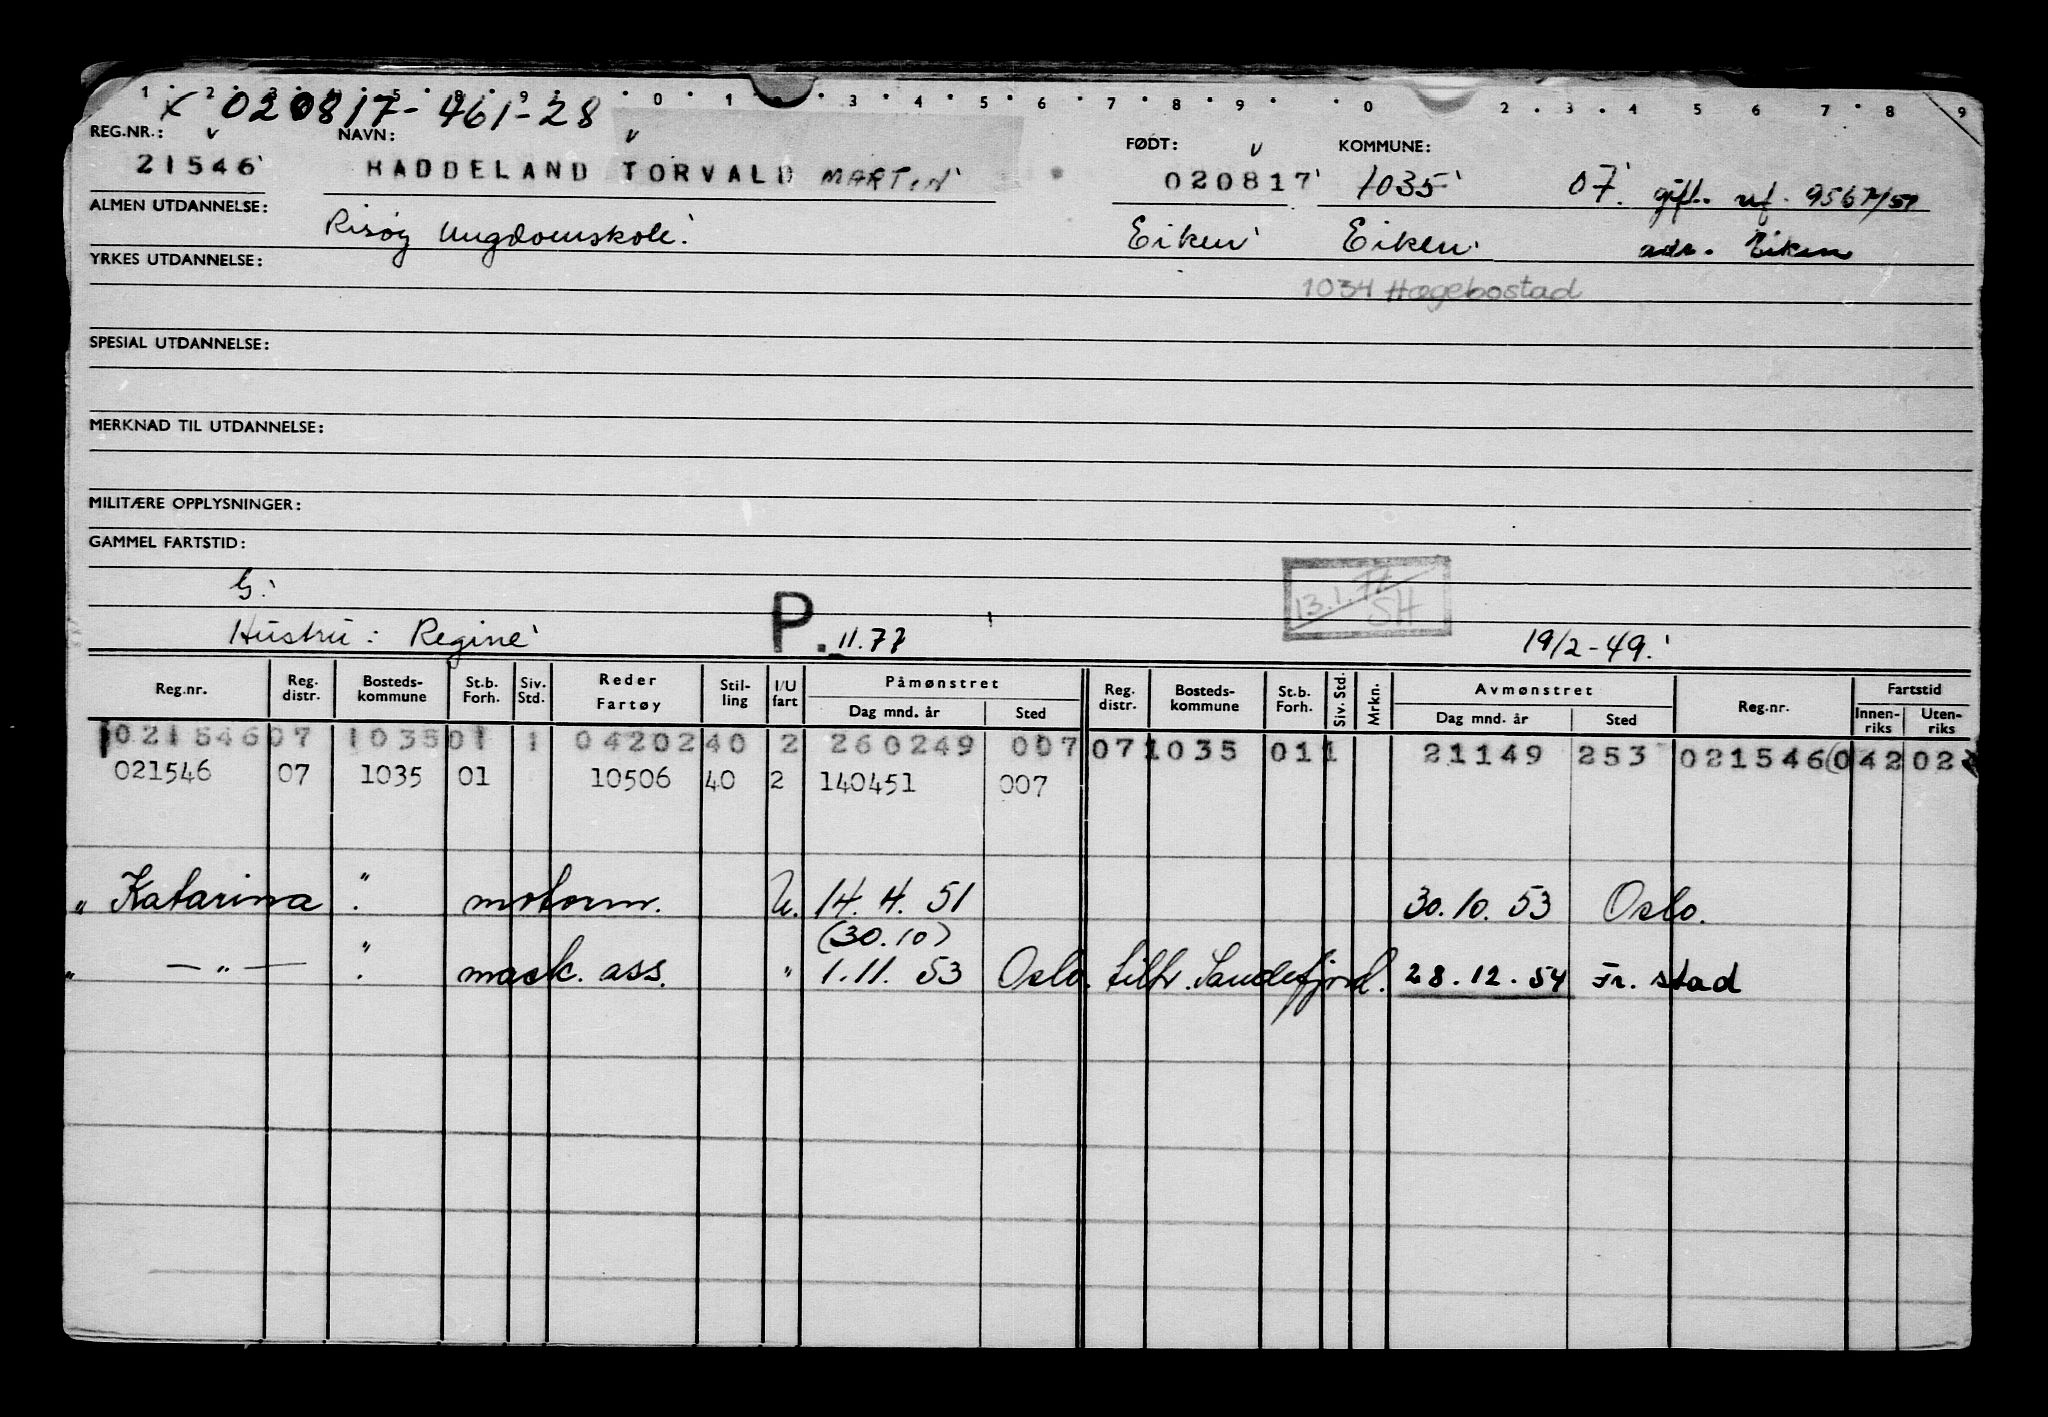 1 2 3 4 5 8 9 0 1 3 4 5 6 7 8 9 0 2 3 4 5 6 7 8 9
X 020817-461-28
REG.NR.: v NAVN: v FØDT: v KOMMUNE:
21546' HADDELAND TORVALD MARTIN' 020817' 1035' 07.' gift. nf. 9567/51
ALMEN UTDANNELSE: Risøy Ungdomskole.' Eiken' Eiken' adr. Eiken
YRKES UTDANNELSE:
1034 Hægebostad
SPESIAL UTDANNELSE:
MERKNAD TIL UTDANNELSE:
MILITÆRE OPPLYSNINGER:
GAMMEL FARTSTID:
G.' 13.1.72 SH
Hustru: Regine' P. 11.77 19/2-49.'
Reg.nr. Reg. distr. Bosteds-kommune St.b. Forh. Siv. Std. Reder Fartøy Stil-ling I/U fart Påmønstret Dag mnd. år Sted Reg. distr. Bosteds-kommune St.b. Forh. Siv. Std. Mrkn. Avmønstret Dag mnd. år Sted Reg.nr. Fartstid Innen-riks Uten-riks
021546 07 1035 01 1 04202 40 2 260249 007 07 1035 01 1 21149 253 021546 042 02
021546 07 1035 01 10506 40 2 140451 007
" Katarina " . motorm. U. 14.4.51 30.10.53 Oslo.
(30.10)
" — " — " . mask. ass. " 1.11.53 Oslo. tilh. Sandefjord. 28.12.54 Fr. stad